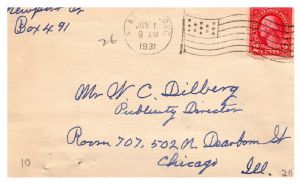 Newport Ky
Box 491
26
JUN 1
9 AM
1931
Mr W C. Dilberg
Publicity Director
Room 707, 502 N Dearborn St
Chicago
Ill.
10
20